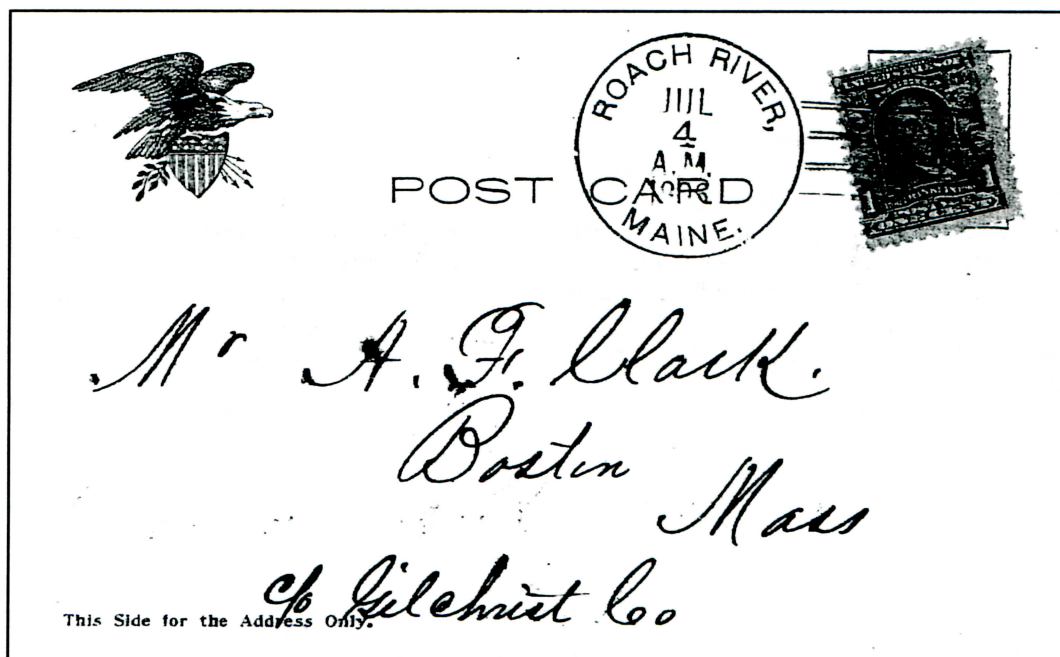 ROACH RIVER,
JUL
4
A.M.
MAINE.
POST CARD
Mr A. F. Clark.
Boston
Mass
c/o Gilchrist Co
This Side for the Address Only.